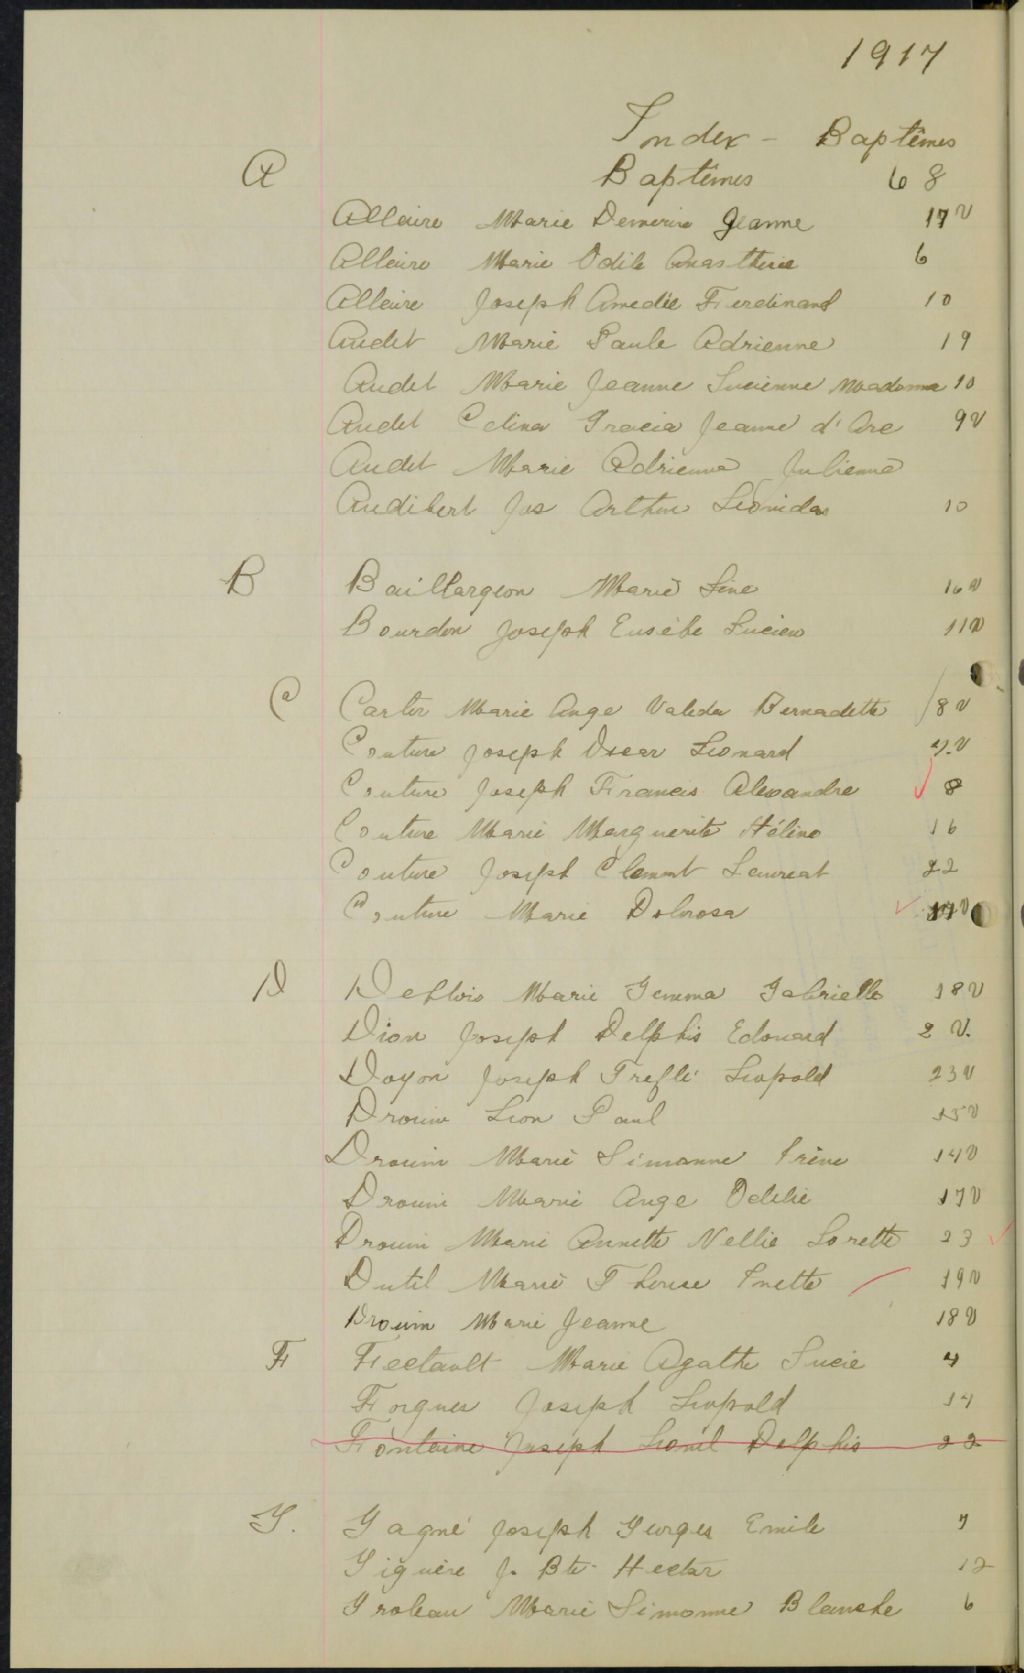 1917
Index - Baptêmes
A Baptêmes 68
Allaire Marie Jeanne 17v
Allaire Marie Odile Anasthasie 6
Allaire Joseph Amedée Ferdinand 10
Audet Marie Paule Adrienne 19
Audet Marie Jeanne Lucienne Madonna 10
Audet Celina Gracia Jeanne d'Arc 9v
Audet Marie Adrienne Julienne
Audibert Jos Arthur Léonidas 10
B Baillargeon Marie Line 16v
Bourdon Joseph Eusèbe Lucien 11v
C Carter Marie Ange Valeda Bernadette 8v
Couture Joseph Oscar Leonard 7.v
Couture Joseph Francis Alexandre 8
Couture Marie Marguerite Hélène 16
Couture Joseph Clement Laureat 22
Couture Marie Dolorosa 17v
D Deblois Marie Gemma Gabrielle 18v
Dion Joseph Delphis Edouard 2 v.
Doyon Joseph Trefflé Leopold 23v
Drouin Leon Paul 15v
Drouin Marie Simonne Irène 14v
Drouin Marie Ange Odelie 17v
Drouin Marie Annette Nellie Lorette 23
Dutil Marie Therese Inette 19v
Drouin Marie Jeanne 18v
F Fectault Marie Agathe Lucie 4
Forgues Joseph Leopold 14
Fontaine Joseph Lionel Delphis 22
G. Gagné Joseph Georges Emile 7
Giguère J. Bte Hector 12
Groleau Marie Simonne Blanche 6